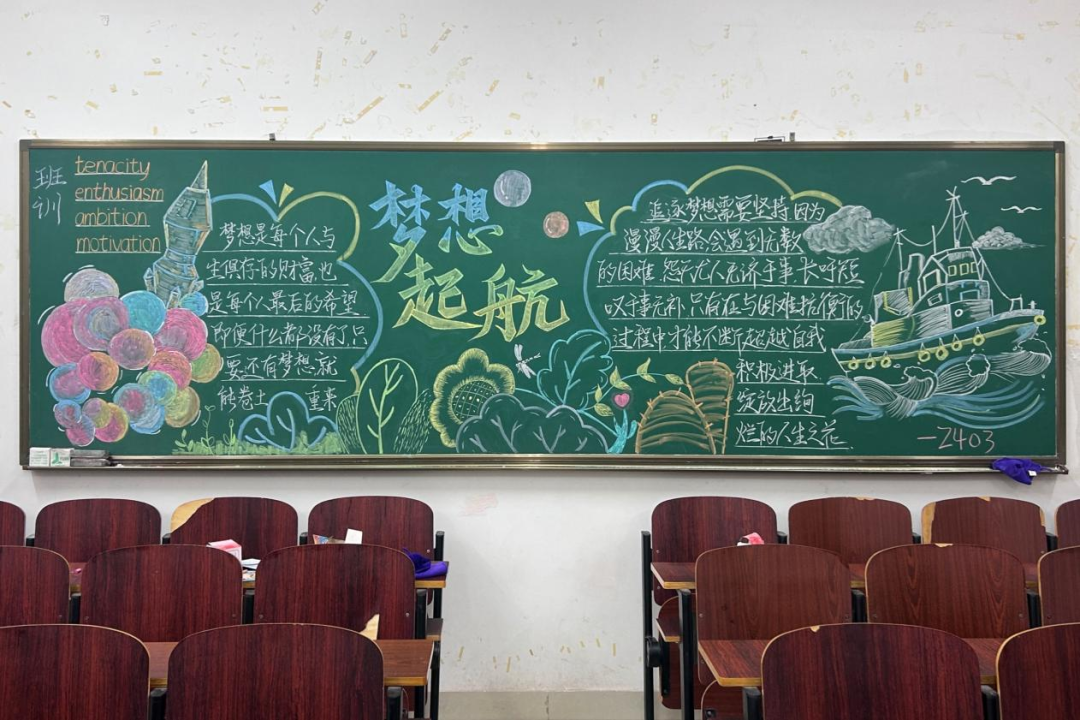 班训
tenacity
enthusiasm
ambition
motivation
梦想是每个人与
生俱存的财富,也
是每个人最后的希望
即便什么都没有了,只
要还有梦想,就
能卷土 重来
梦想
起航
追逐梦想需要坚持,因为
漫漫人生路,会遇到无数
的困难,怨天尤人无济于事,长吁短
叹于事无补,只有在与困难抗衡的
过程中才能不断超越自我
积极进取
绽放出绚
烂的人生之花
—2403